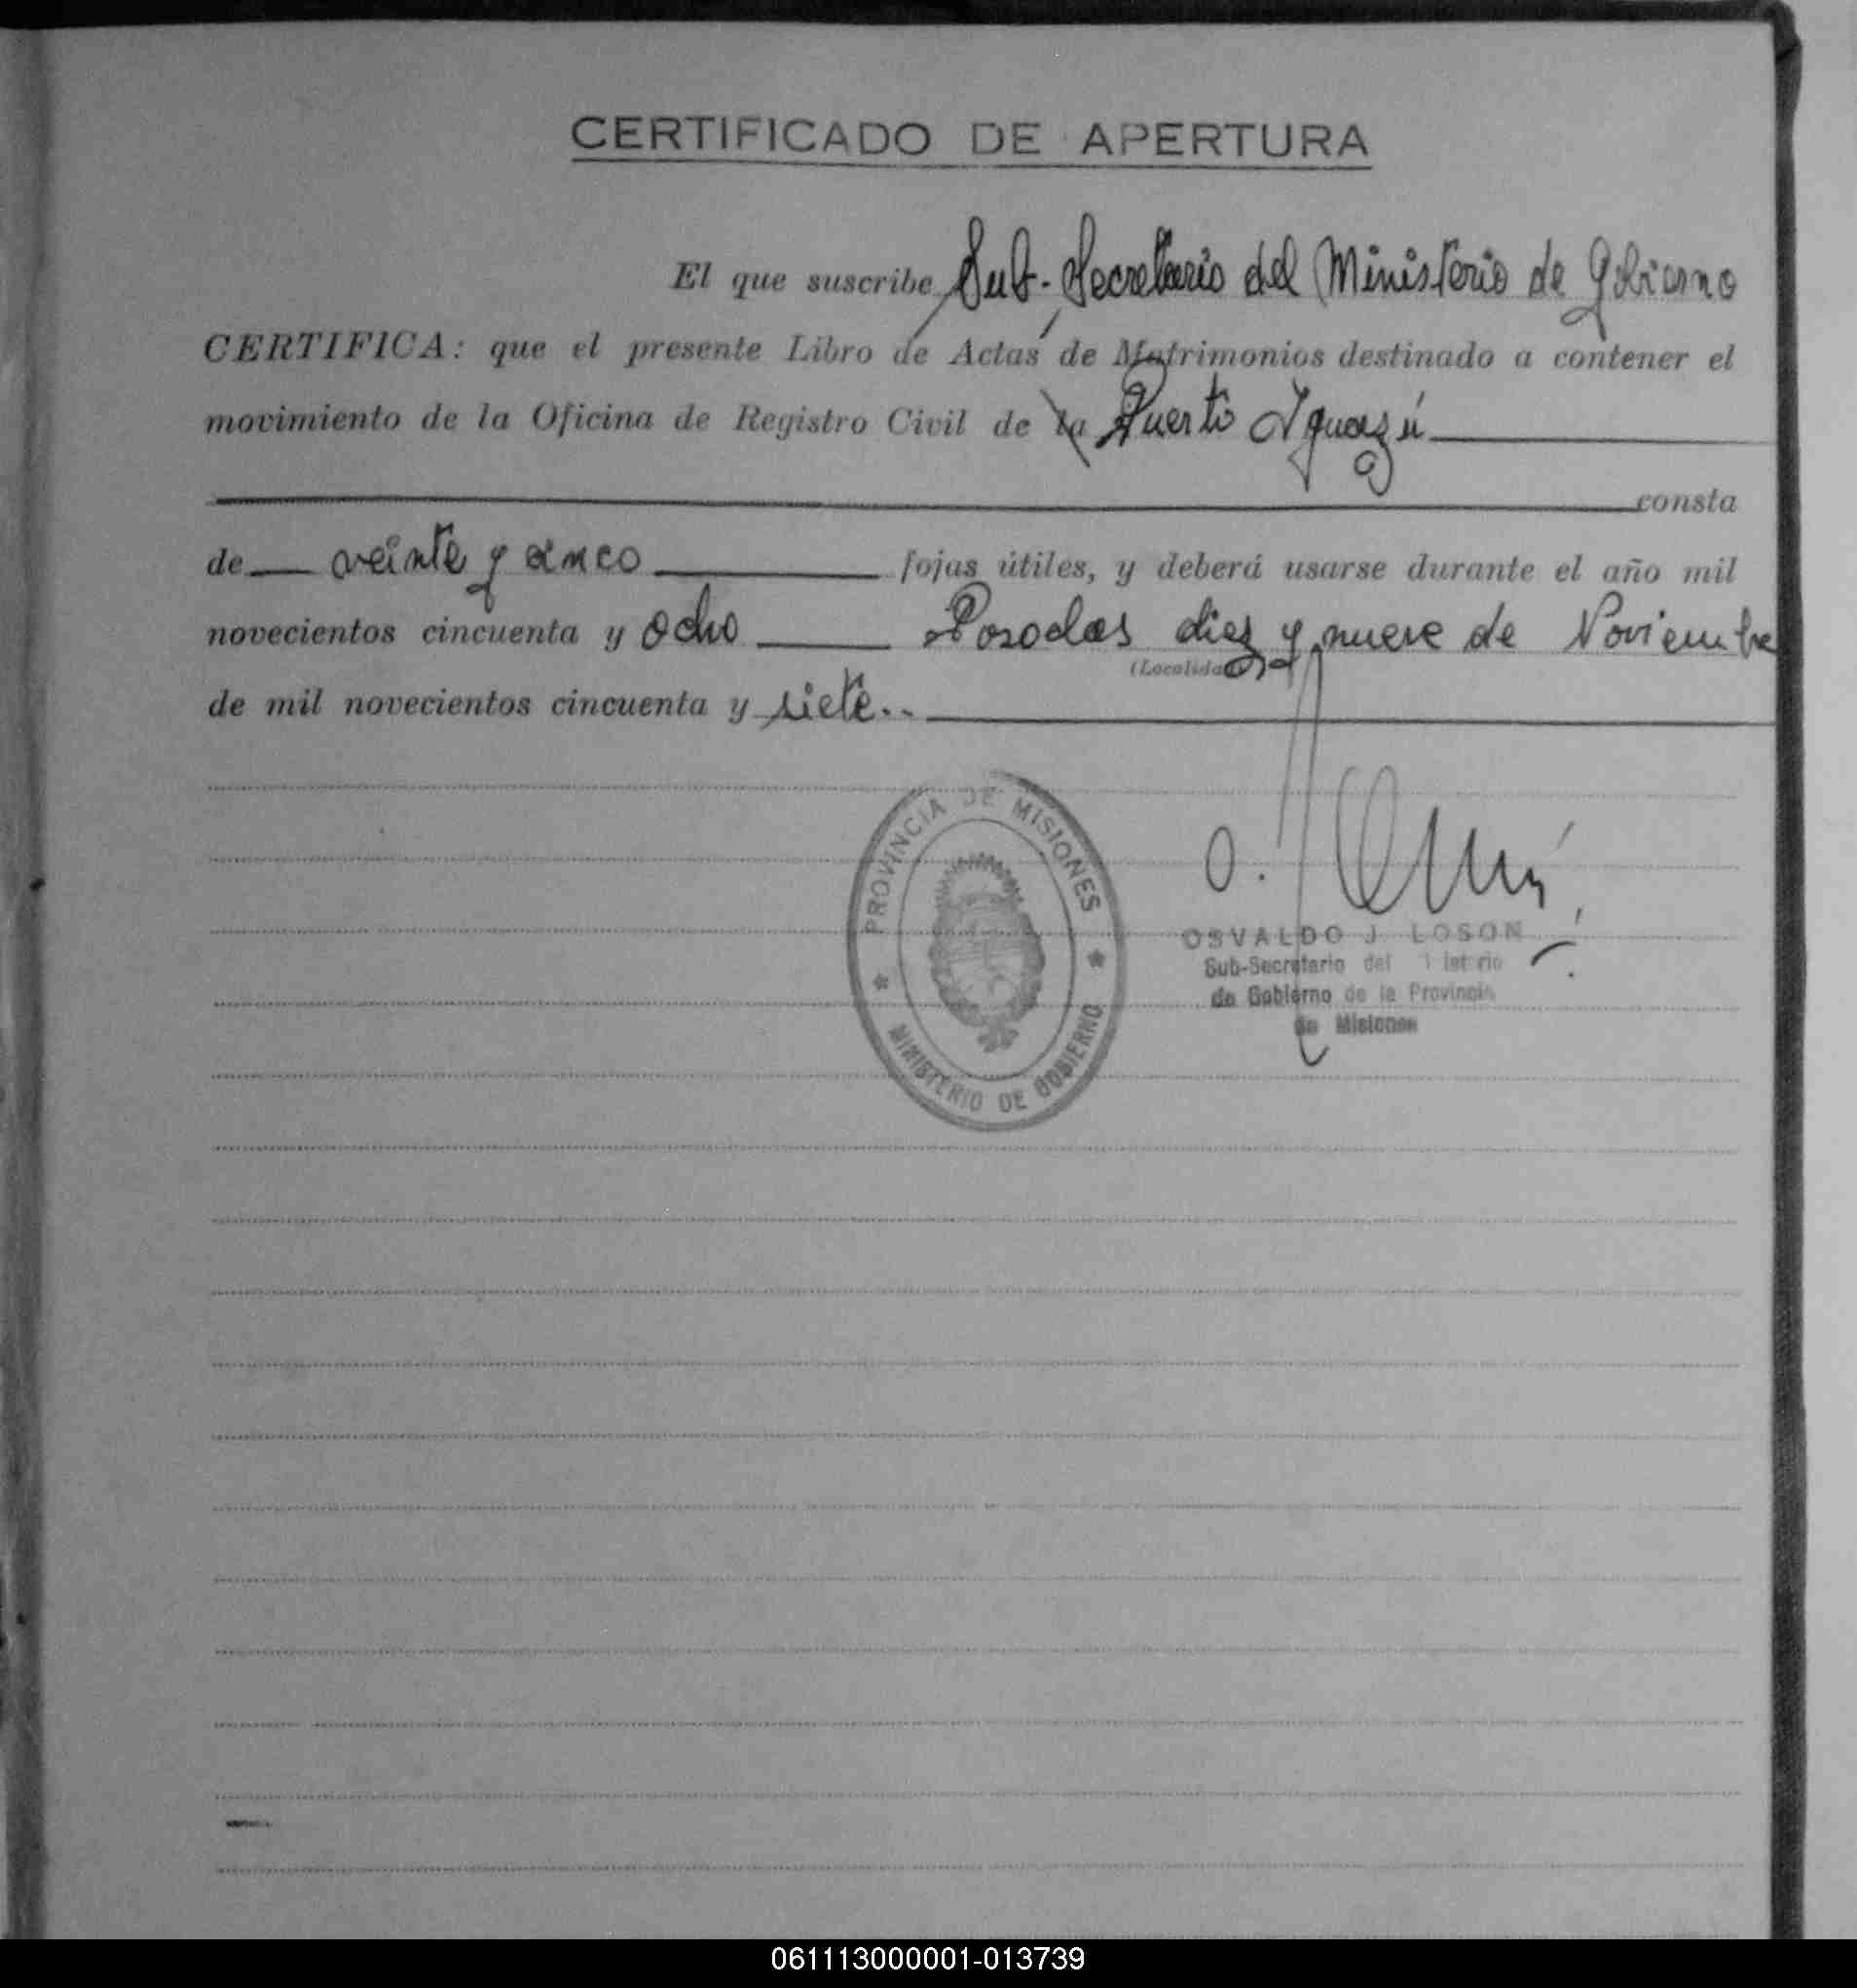 CERTIFICADO DE APERTURA
El que suscribe Sub-Secretario del Ministerio de Gobierno
CERTIFICA: que el presente Libro de Actas de Matrimonios destinado a contener el
movimiento de la Oficina de Registro Civil de la Puerto Iguazú
consta
de veinte y cinco fojas útiles, y deberá usarse durante el año mil
novecientos cincuenta y ocho Posadas diez y nueve de Noviembre
(Localidad)
de mil novecientos cincuenta y siete..
PROVINCIA DE MISIONES
MINISTERIO DE GOBIERNO
OSVALDO J. LOSON
Sub-Secretario del
de Gobierno de la Provincia
de Misiones
061113000001-013739